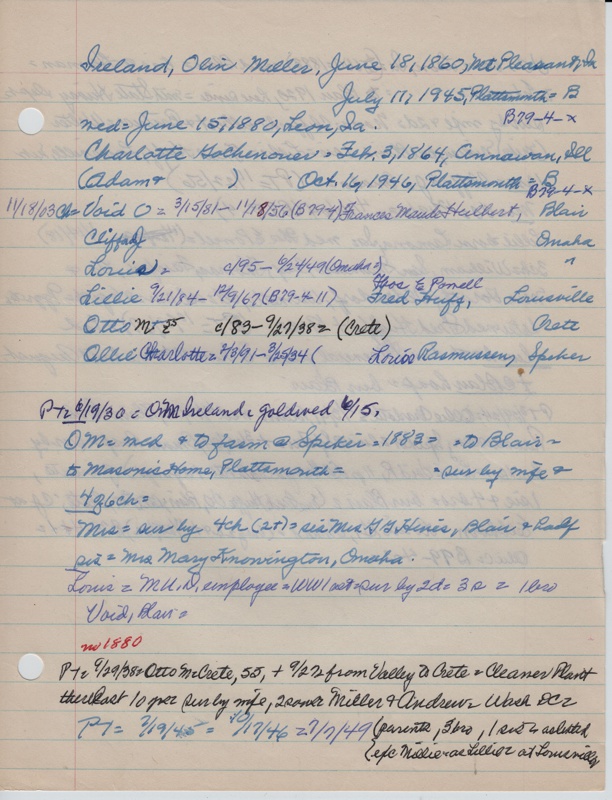 Ireland, Olin Miller, June 18, 1860, Mt Pleasant, Ia
July 11, 1945, Plattsmouth = B
B79-4-x
med = June 15, 1880, Leon, Ia.
Charlotte Gochenour = Feb. 3, 1864, Annawan, Ill
(Adam + ) Oct. 16, 1946, Plattsmouth = B
B79-4-x
11/18/03 Ch = Void O = 3/15/81 - 11/18/56 (B79-4) Frances Maude Hilbert, Blair
Cliff Omaha
Louis = c/95 - 6/24/49 (Omaha = ) "
Thos E Powell
Lillie 9/21/84 - 12/9/67 (B79-4-11) Fred Huff, Louisville
Otto M + c/83 - 9/27/38 = (Crete) Crete
Ollie Charlotte = 2/3/91 - 3/25/34 ( Louis Rasmussen, Spiker
P + = 6/19/30 = O M Ireland = goldwed 6/15,
O M = med + to farm @ Spiker = 1883 = = to Blair =
to Masonic Home, Plattsmouth = = sur by wife +
4 of 6 ch =
Mrs = sur by 4 ch (2 + ) = sis Mrs G G Hines, Blair + half
sis = Mrs Mary Knowington, Omaha.
Louis = M U D, employee = WW 1 vet = sur by 2 d = 3 s = 1 bro
Void, Blair =
no 1880
P + = 9/29/38 = Otto M = Crete, 55, + 9/27 from Valley to Crete = Cleaner Plant
there last 10 yrs sur by wife, 2 sons = Miller + Andrew = Wash DC =
P + = 7/19/45 = 10/17/46 = 7/7/49 (parents, 3 bro, 1 sis as listed
exc Millie as Lillie = at Louisville)